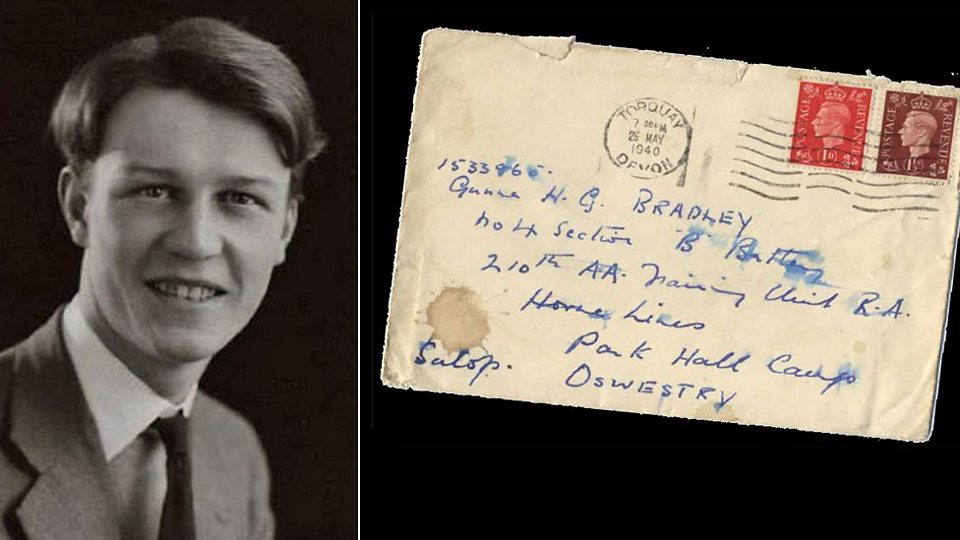 TORQUAY
7 30 PM
26 MAY
1940
DEVON
POSTAGE REVENUE
1D
POSTAGE REVENUE
1½D
Gunner H. G. BRADLEY
No 4 Section "B" Battery
210th AA. Training Unit R.A.
Horne Lines
Park Hall Camp
OSWESTRY
Salop.